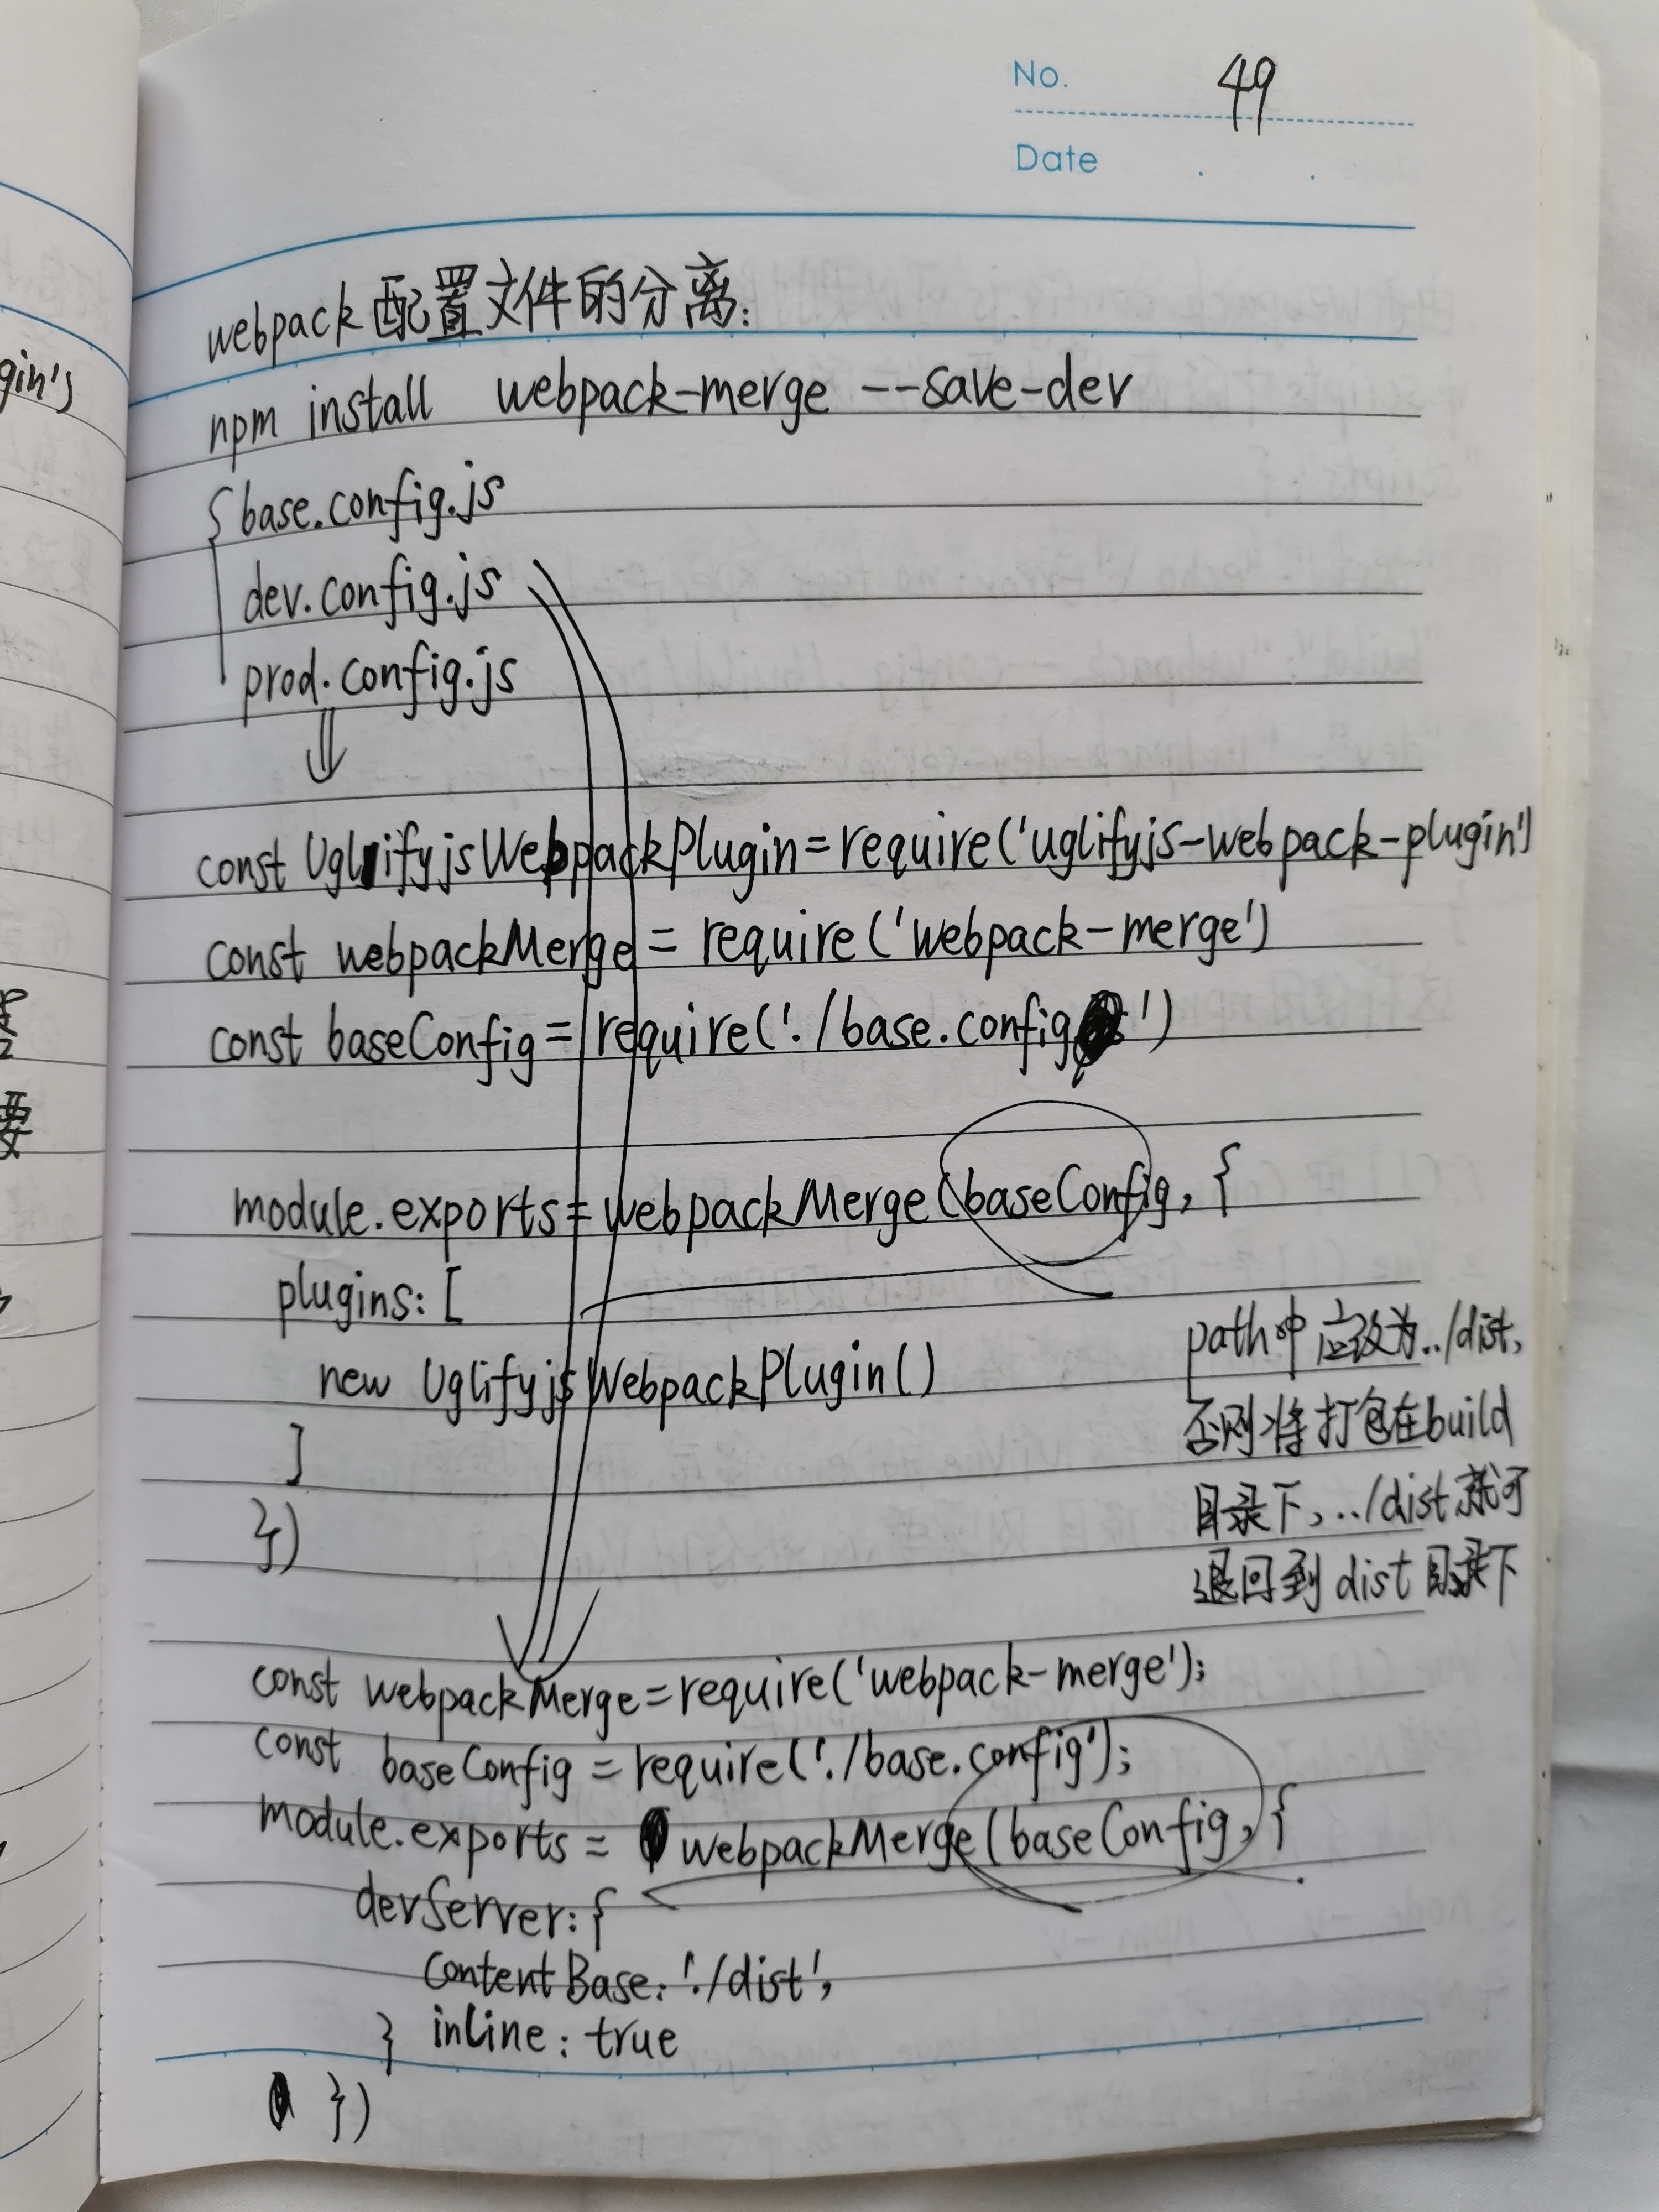 No. 49
Date
webpack配置文件的分离:
npm install webpack-merge --save-dev
{ base.config.js
dev.config.js
prod.config.js
const UglifyjsWebpackPlugin=require('uglifyjs-webpack-plugin')
const webpackMerge = require('webpack-merge')
const baseConfig = require('./base.config')
module.exports = webpackMerge(baseConfig, {
plugins: [
new UglifyjsWebpackPlugin()
]
})
path中应改为../dist,
否则将打包在build
目录下,../dist就可
退回到dist目录下
const webpackMerge=require('webpack-merge');
const baseConfig = require('./base.config');
module.exports = webpackMerge(baseConfig, {
devServer: {
contentBase: './dist',
} inline: true
})
gin')
要